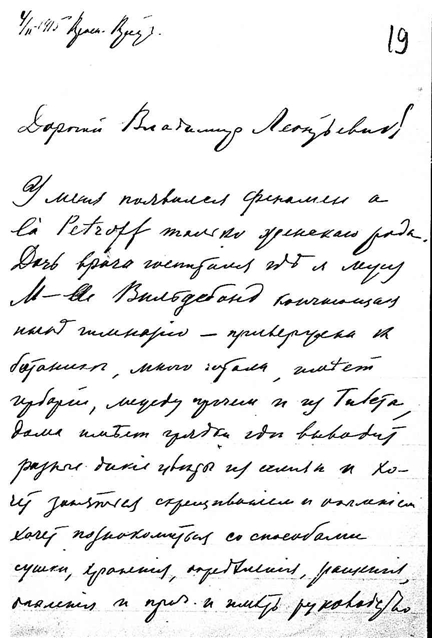 4/II-1915 Красн. Вруз.
19
Дорогой Владимир Леонтьевич!
У меня появился феномен а
là Petroff только женскаго рода.
Дочь врача госпиталя где я лежу
М-lle Вильдебанд кончающая
гимназію — привержена к
ботанике, много читала, имѣет
гербаріи, между прочем и из Тибета,
дома имѣет грядки где выводит
разные дикіе цвѣты из семян и хо-
чет заняться скрещиваніем и
хочет познакомиться со способами
сушки, храненія, опредѣленія, ращенія,
опыленія и проч. и имѣть руководство